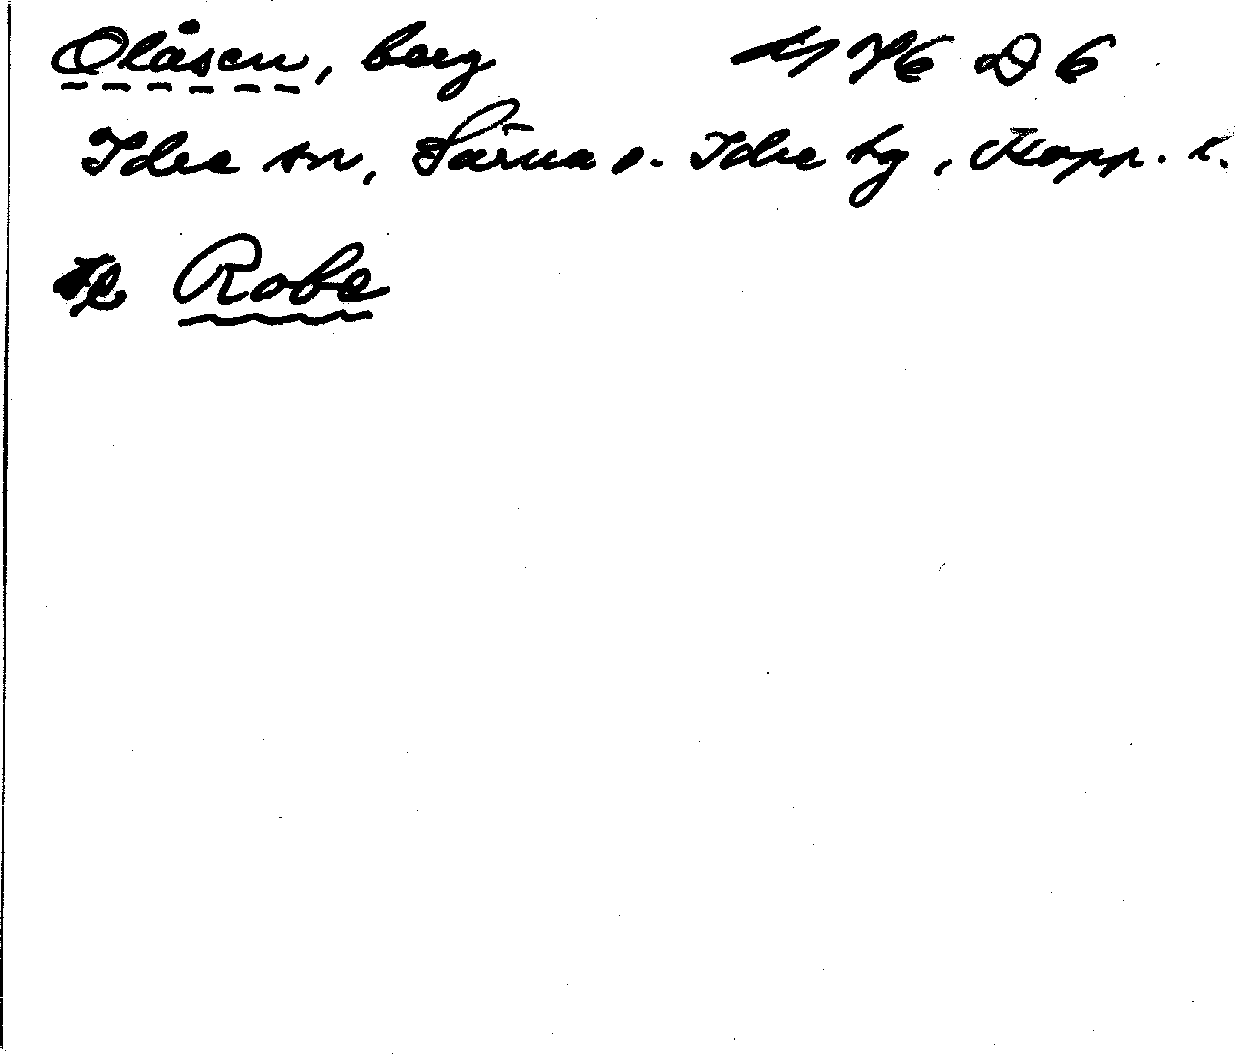 Olåsen, berg 4 76 D 6
Idre sn, Särna o. Idre tg, Kopp. l.
Se Robe